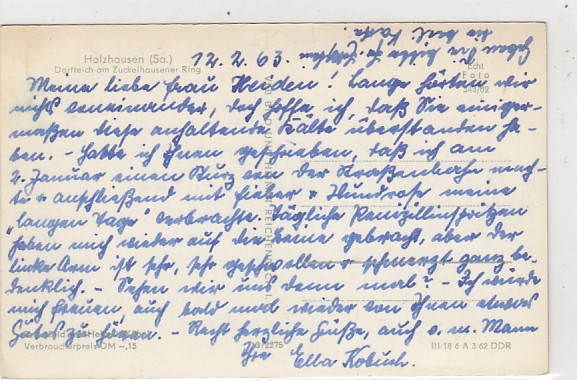 Holzhausen (Sa.)
Dorfteich am Zuckelhausener Ring
12.2.63.
Echt
Foto
Meine liebe Frau Heiden! Lange hörten wir
nichts voneinander, doch hoffe ich, daß Sie einiger-
maßen diese anhaltende Kälte überstanden ha-
ben. - Hatte ich Ihnen geschrieben, daß ich am
2. Januar einen Sturz von der Straßenbahn mach-
te u. anschließend mit Fieber u. Wundrose meine
"langen Tage" verbrachte. Tägliche Penizillinspritzen
haben mich wieder auf die Beine gebracht, aber der
linke Arm ist sehr, sehr geschwollen u. schmerzt ganz be-
denklich. - Sehen wir uns denn mal? - Ich würde
mich freuen, auch bald mal wieder von Ihnen etwas
Gutes zu hören. - Recht herzliche Grüße, auch v. m. Mann
Ihre Ella Kobuch.
Verbraucherpreis DM -,15
III/18 6 A 3.62 DDR